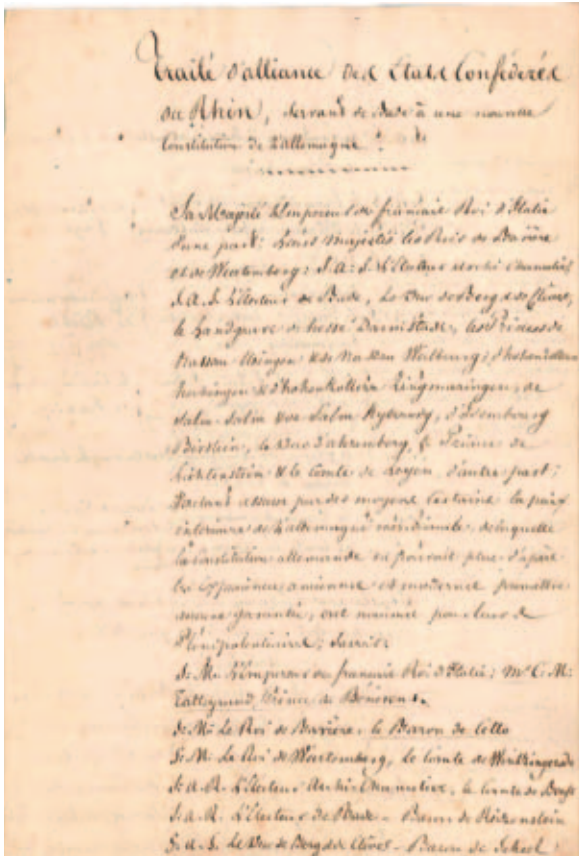 Traité d'alliance des Etats Confédérés
du Rhin, servant de Base à une nouvelle
Constitution de l'allemagne.
Sa Majesté l'Empereur des français Roi d'Italie
d'une part: Leurs Majestés les Rois de Bavière
et de Wurtemberg: S. A. S. L'Electeur archi chancelier,
S. A. S. L'Electeur de Bade, Le Duc de Berg & de Clèves,
le Landgrave de hesse Darmstadt, les Princes de
Nassau Usingen & de Nassau Weilbourg, d'hohenzollern
hechingen & d'hohenzollern Siegmaringen, de
Salm-Salm & de Salm Kyrbourg, d'Isembourg
Birstein, le Duc d'ahremberg, le Prince de
Lichtenstein & le Comte de Leyen, d'autre part;
Voulant assurer par des moyens certains la paix
intérieure de l'allemagne méridionale, à laquelle
la constitution allemande ne pouvait plus d'après
les expérience ancienne et moderne promettre
aucune garantie, ont nommé pour leurs
Plénipotentiaires; Savoir:
S. M. L'Empereur des français Roi d'Italie; Mr C. M.
Talleyrand, Prince de Bénévent.
S. M. Le Roi de Bavière, le Baron de Cetto
S. M. Le Roi de Wurtemberg, le Comte de Wintzingerode
S. A. R. L'Electeur Archi-Chancelier, le Comte de Beust
S. A. R. L'Electeur de Bade - Baron de Reizenstein
S. A. S. Le Duc de Berg & de Clèves - Baron de Schell